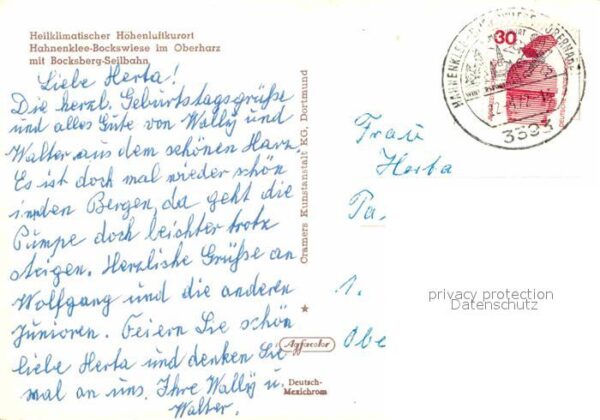 Heilklimatischer Höhenluftkurort
Hahnenklee-Bockswiese im Oberharz
mit Bocksberg-Seilbahn
Liebe Herta!
Die herzl. Geburtstagsgrüße
und alles Gute von Wally und
Walter aus dem schönen Harz.
Es ist doch mal wieder schön
in den Bergen, da geht die
Pumpe doch leichter trotz
steigen. Herzliche Grüße an
Wolfgang und die anderen
Junioren. Feiern Sie schön
liebe Herta und denken Sie
mal an uns. Ihre Wally u.
Walter.
Cramers Kunstanstalt KG, Dortmund
Agfacolor
Deutsch-
Mexichrom
30
3393
Frau
Herta
Pa.
1.
Obe
privacy protection
Datenschutz